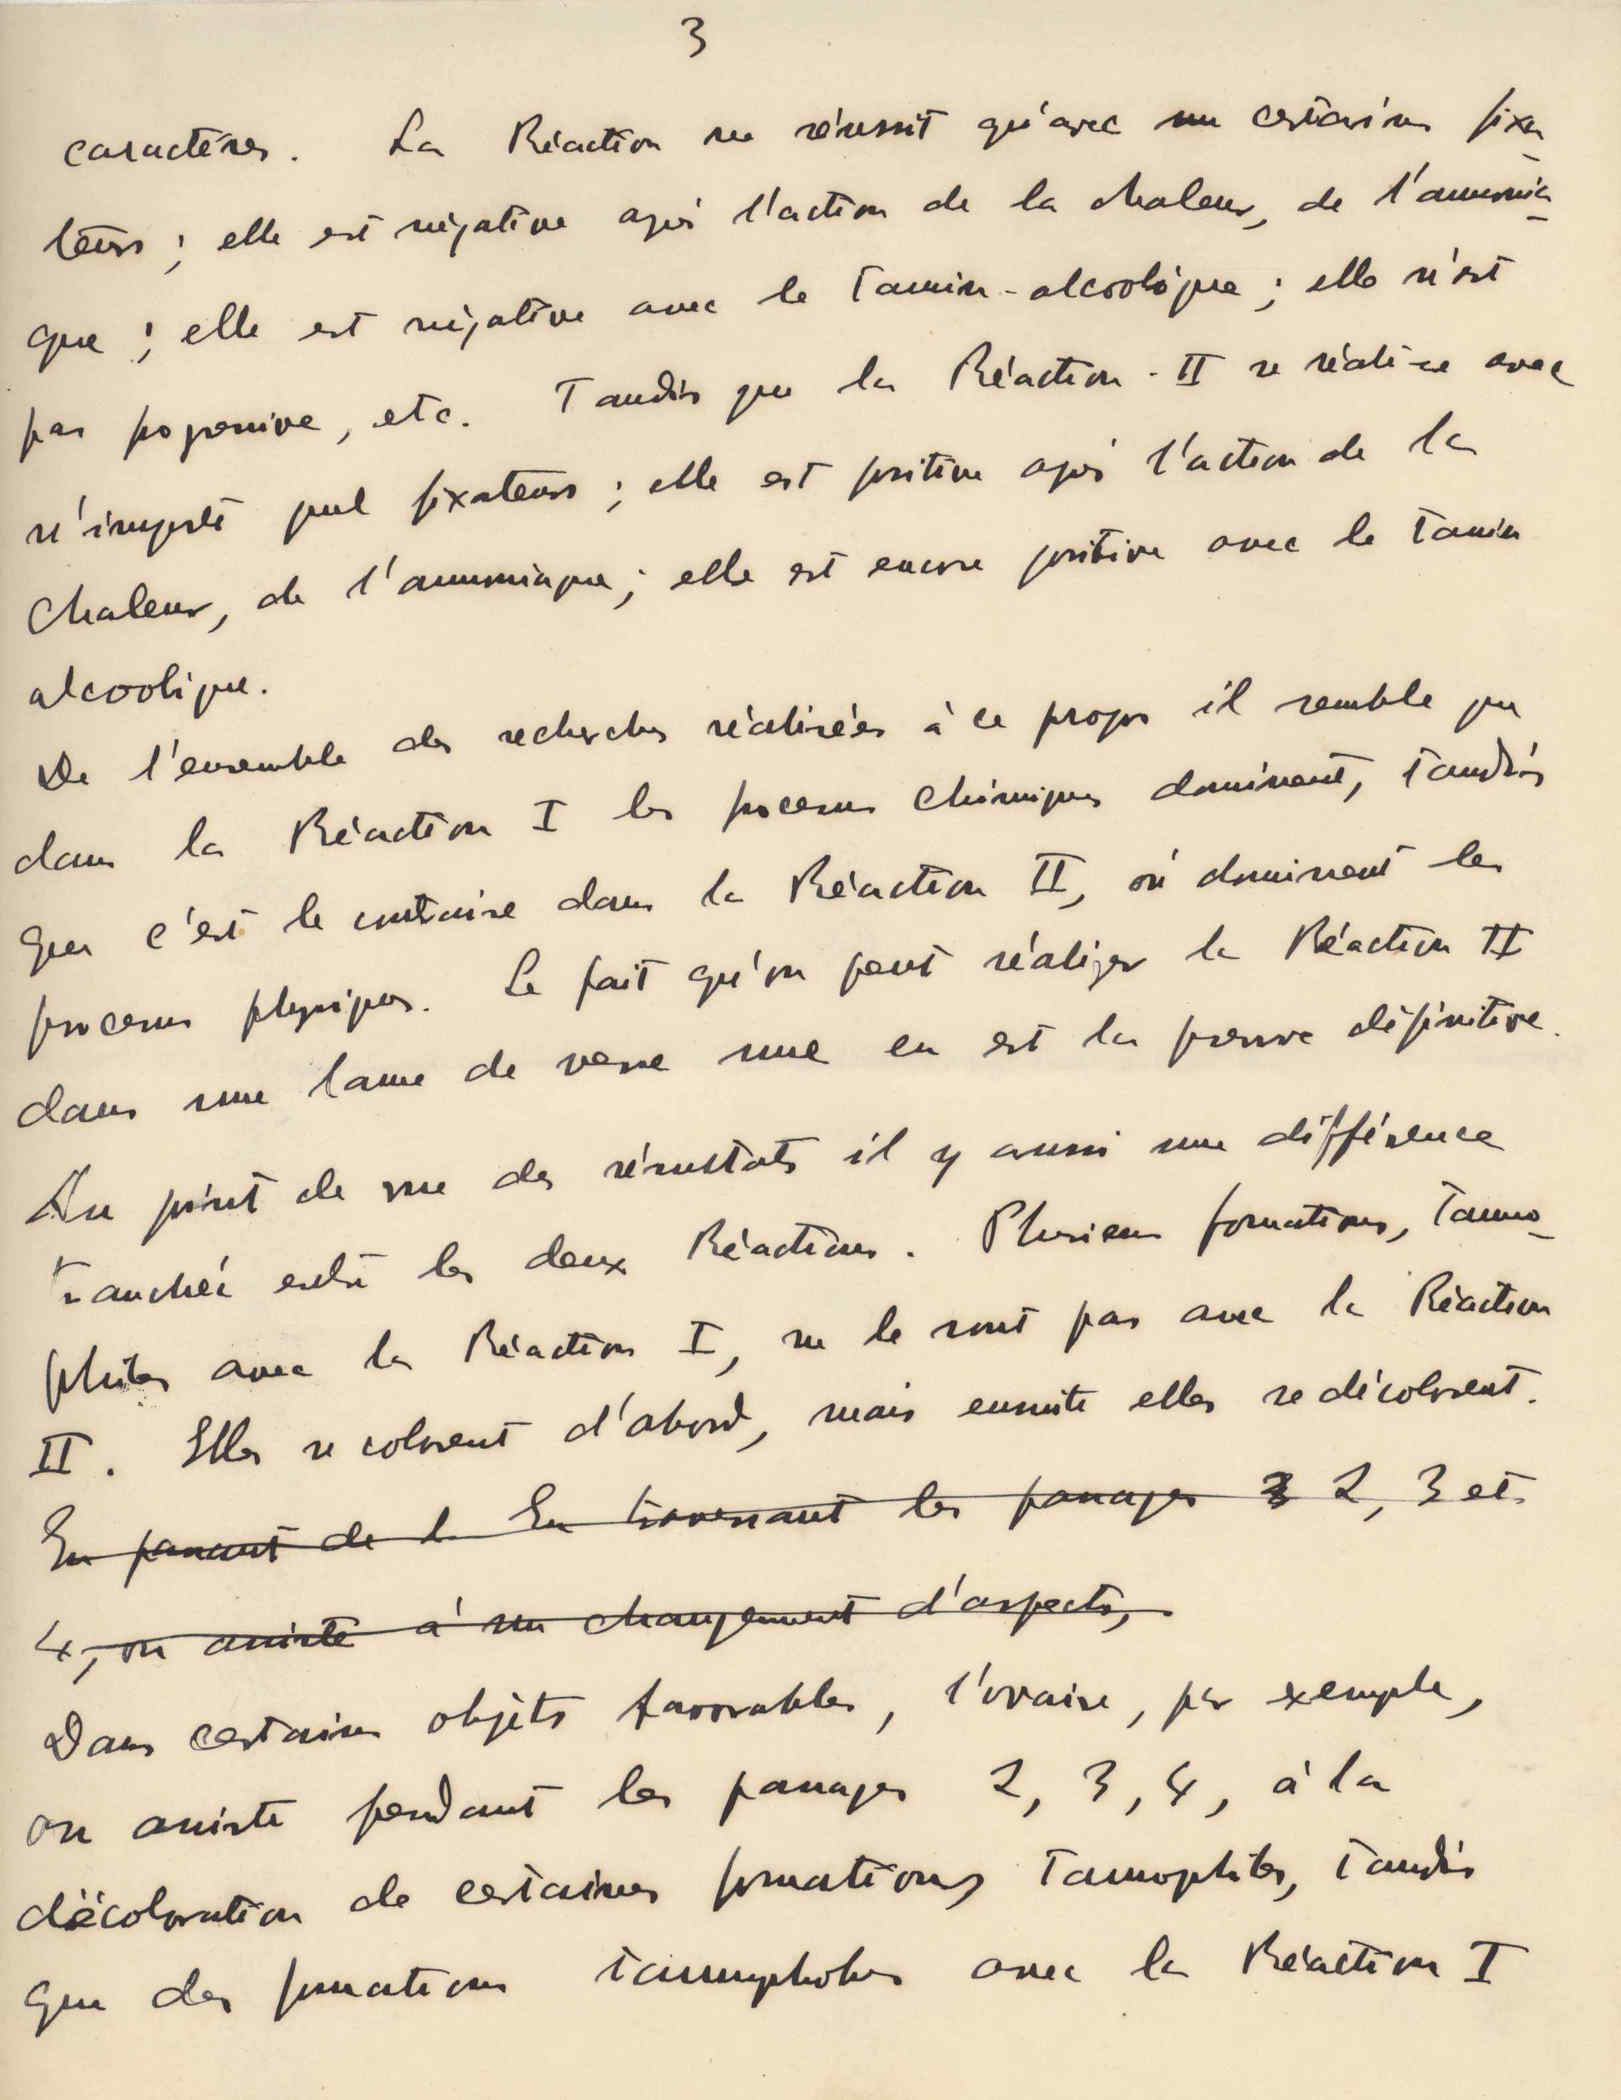 3
caractères. La Réaction ne réussit qu'avec un certains fixa
teurs ; elle est négative après l'action de la chaleur, de l'ammonia-
que ; elle est négative avec le Tannin-alcoolique ; elle n'est
pas progressive, etc. Tandis que la Réaction-II se réalise avec
n'importe quel fixateurs ; elle est positive après l'action de la
Chaleur, de l'ammoniaque ; elle est encore positive avec le Tannin
alcoolique.
De l'ensemble des recherches réalisées à ce propos il semble que
dans la Réaction I les processus chimiques dominent, tandis
que c'est le contraire dans la Réaction II, où dominent les
processus physiques. Le fait qu'on peut réaliser la Réaction II
dans une lame de verre nue en est la preuve définitive.
Au point de vue des résultats il y aussi une différence
tranchée entre les deux Réactions. Plusieurs formations, Tanno-
philes avec la Réaction I, ne le sont pas avec la Réaction
II. Elles se colorent d'abord, mais ensuite elles se décolorent.
En passant de l En traversant les passages 3 2, 3 et
4, on assiste à un changement d'aspects,
Dans certains objets favorables, l'ovaire, par exemple,
on assiste pendant les passages 2, 3, 4, à la
décoloration de certaines formations Tannophiles, tandis
que des formations tannophobes avec la Réaction I